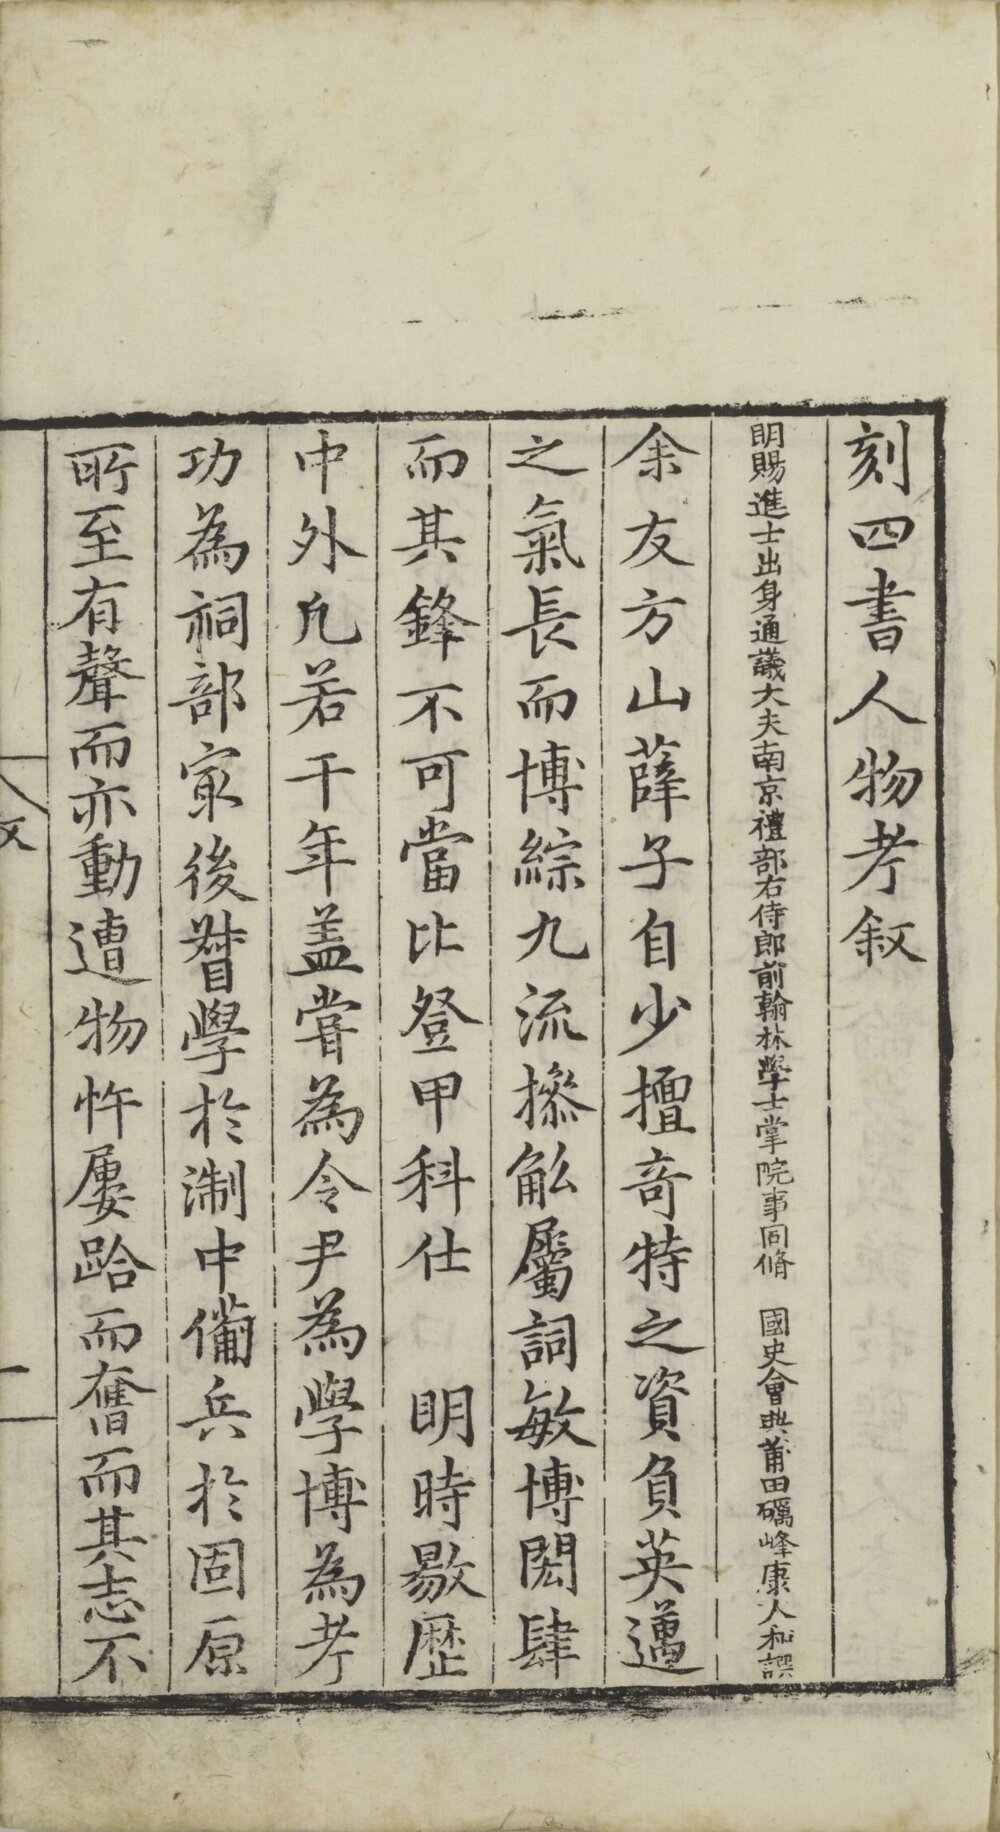 刻四書人物考叙
明賜進士出身通議大夫南京禮部右侍郎前翰林學士掌院事同脩　國史會典莆田礪峰康大和譔
余友方山薛子自少擅奇特之資負英邁
之氣長而博綜九流摻觚屬詞敏博閎肆
而其鋒不可當比登甲科仕　明時敭歷
中外凢若干年盖甞為令尹為學博為考
功為祠部冣後督學於淛中備兵於固原
所至有聲而亦動遭物忤屢跲而奮而其志不